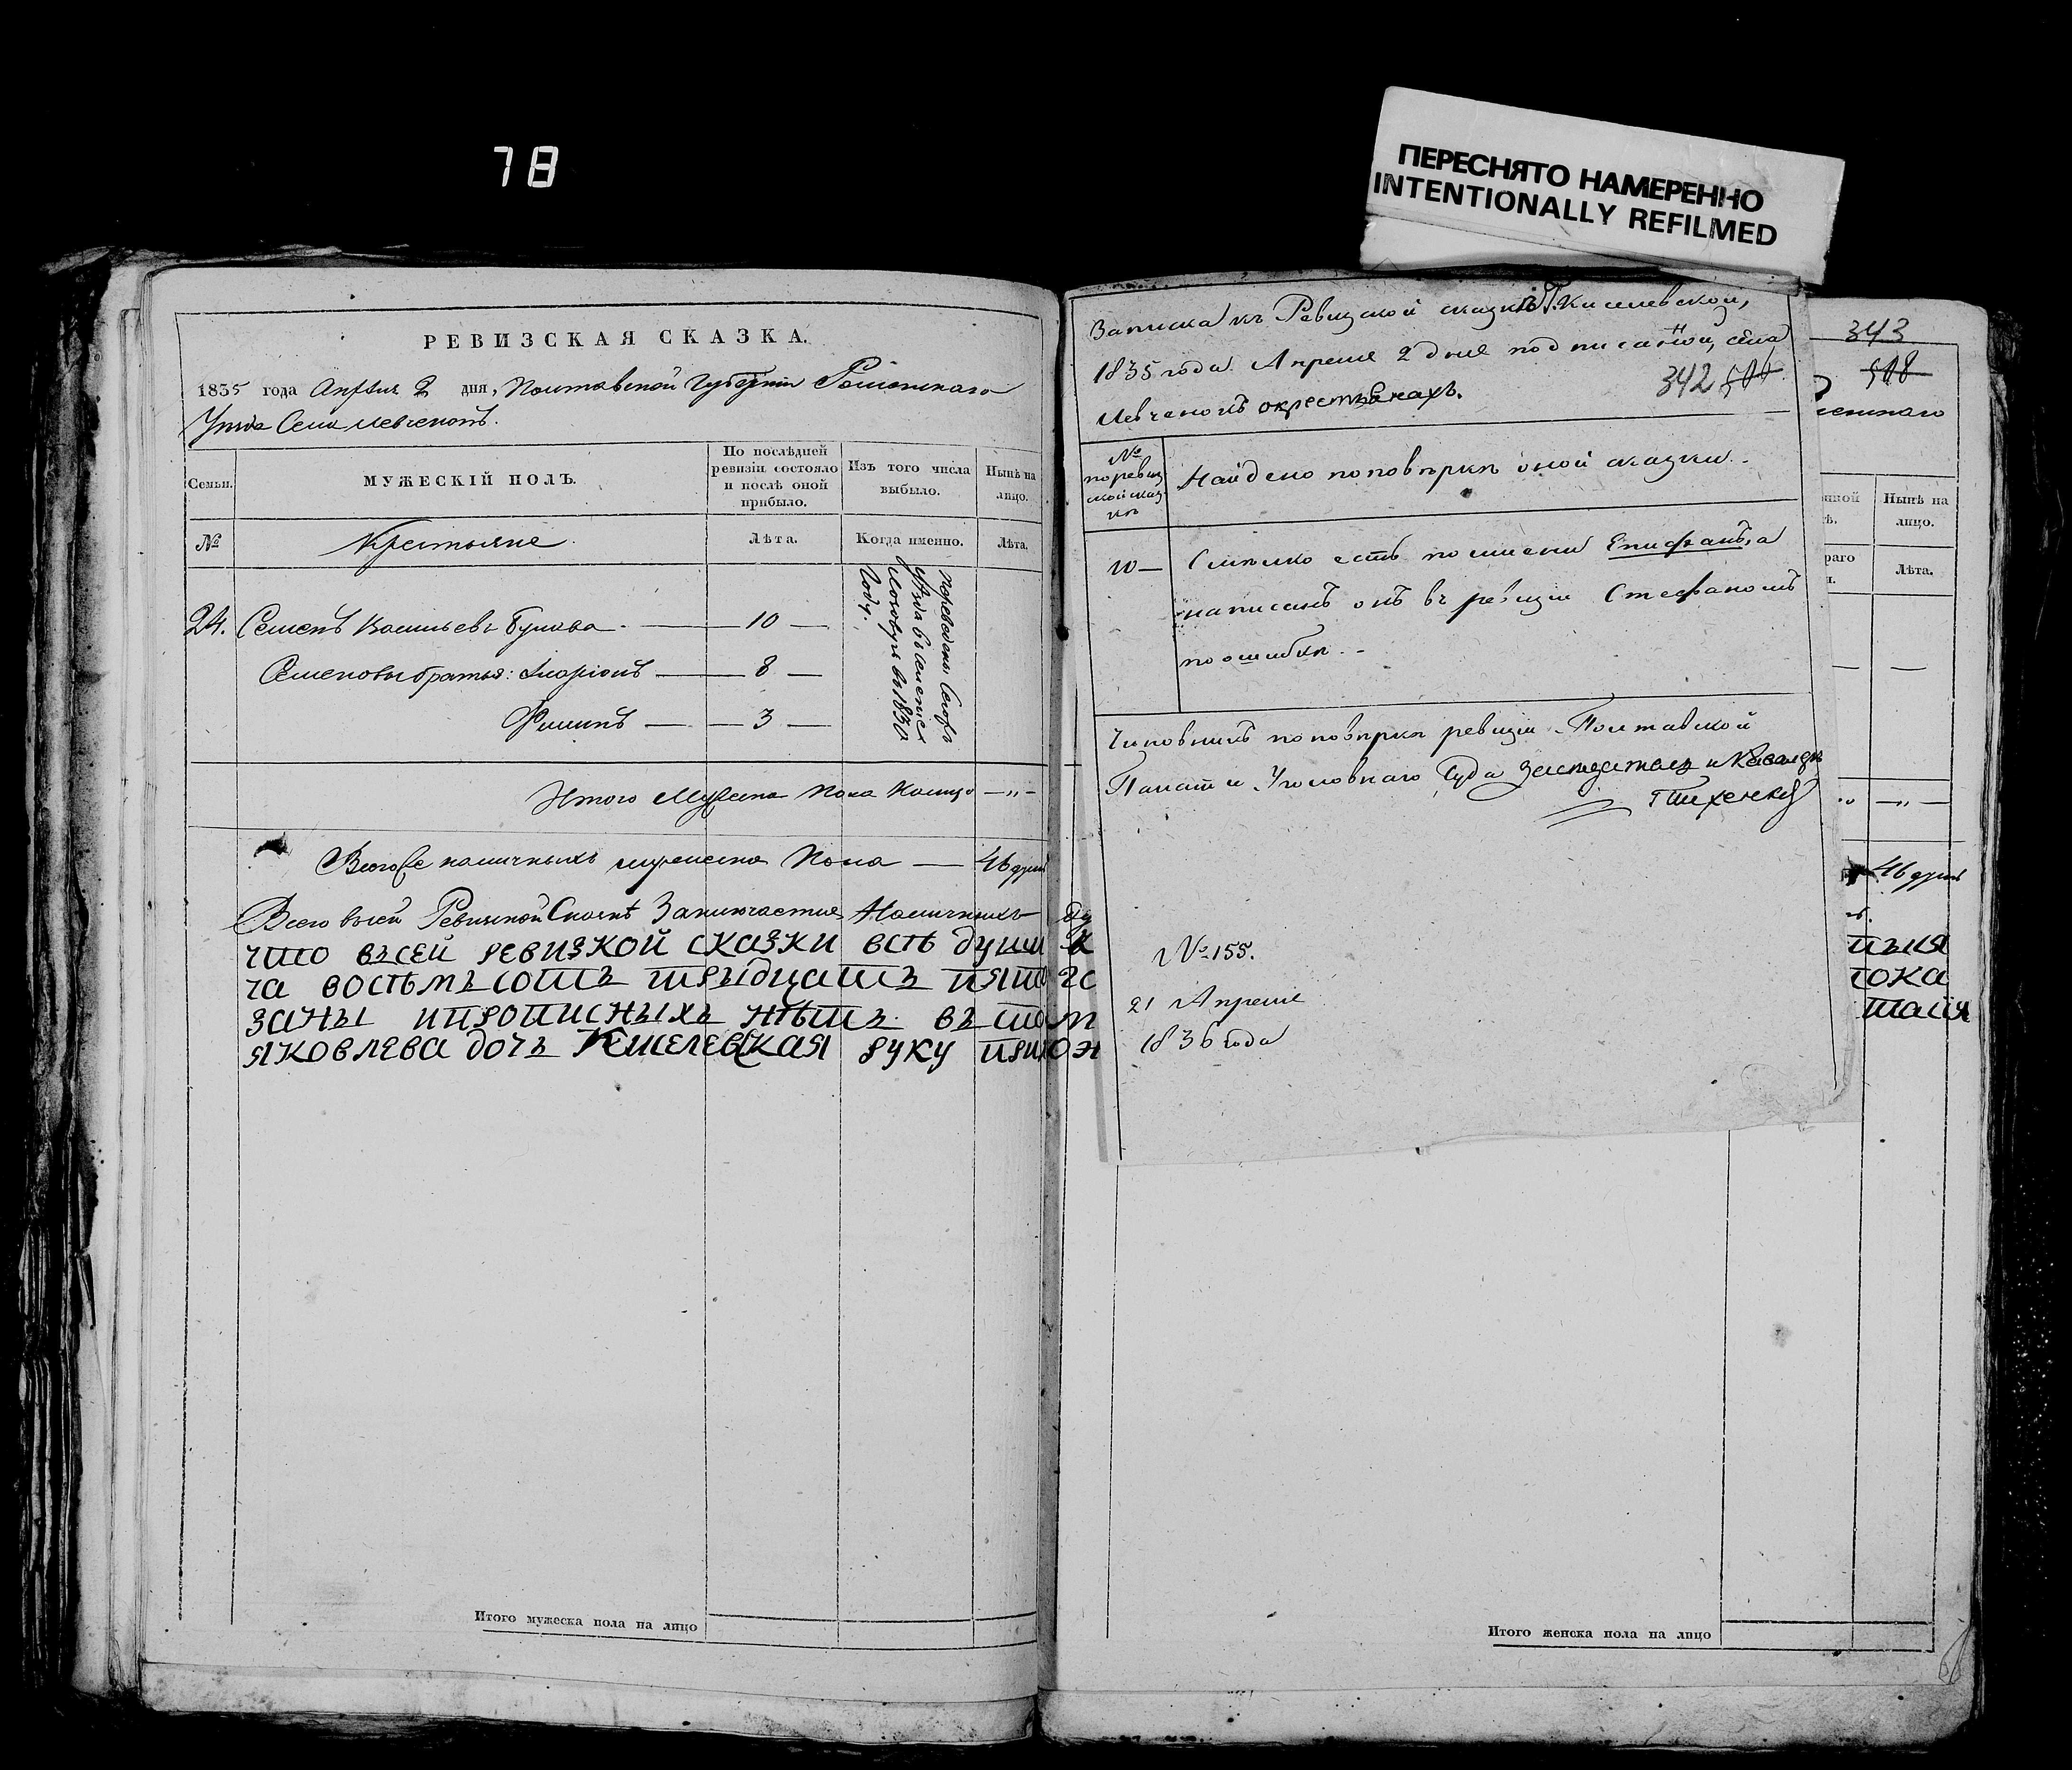 78
ПЕРЕСНЯТО НАМЕРЕННО
INTENTIONALLY REFILMED
РЕВИЗСКАЯ СКАЗКА.
1835 года Апреля 2 дня, Полтавской Губерніи Роменскаго
Уезда Села Левченокъ.
Семьи. МУЖЕСКІЙ ПОЛЪ. По послѣдней ревизіи состояло и послѣ оной прибыло. Изъ того числа выбыло. Нынѣ на лицо.
№ Крестьяне. Лѣта. Когда именно. Лѣта.
24. Семенъ Васильевъ 10
Семеновы братья: Иларіонъ 8
Филипъ 3
въ 1830
Году.
Итого Мужеска Пола Налицо — „ —
Всего наличныхъ мужеска Пола — 46 душъ
Всего в сей Ревизской Сказкѣ Заключается Наличныхъ ду
что въсей ревизкой сказки есть души к
ча восьмъсотъ трыдцатъ пято го
заны ипрописныхъ нѣтъ въ том
яковлева дочъ Киселевская руку прилож
Итого мужеска пола на лицо
Записка къ Ревизской сказкѣ Г. Киселевской,
1835 года Апреля 2 дня подписаной, села
Левченокъ окрестьянахъ.
342
№ поревизской сказке
Найдено поповѣрке оной сказки.
10 — есть по имени Епифанъ, а
написанъ онъ въ ревизіи Стефаномъ
по ошибке.
Чиновникъ поповѣрке ревизіи Полтавской
Палаты Уголовнаго Суда Заседатель и Кавалеръ
№ 155.
21 Апреля
1836 года
343
508
менскаго
Нынѣ на лицо.
Лѣта.
— „ —
46 душъ
Итого женска пола на лицо